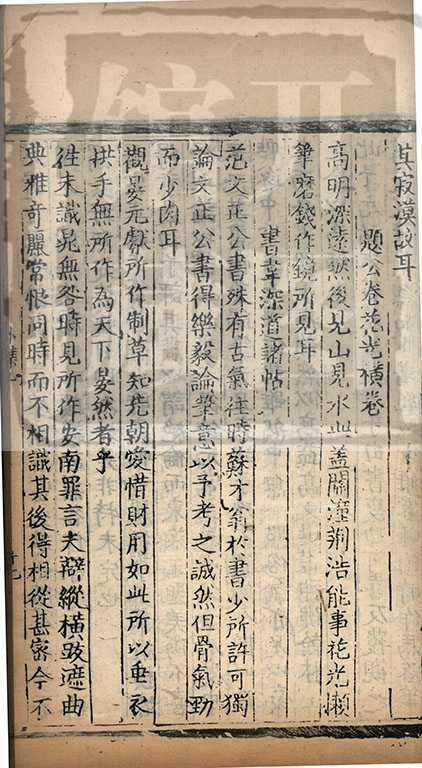 其寂漠故耳
題公卷花光橫卷
高明深遠然後見山見水此蓋關潼荊浩能事花光懶
筆磨錢作鏡所見耳
書韋深道諸帖
范文正公書殊有古氣往時蘇才翁於書少所許可獨
論文正公書得樂毅論筆意以予考之誠然但骨氣勁
而少肉耳
觀晏元獻所作制草知先朝愛惜財用如此所以垂衣
拱手無所作為天下晏然者乎
往未識晁無咎時見所作安南罪言夫辯縱橫跂遮曲
典雅奇麗常恨同時而不相識其後得相從甚密今不
外集